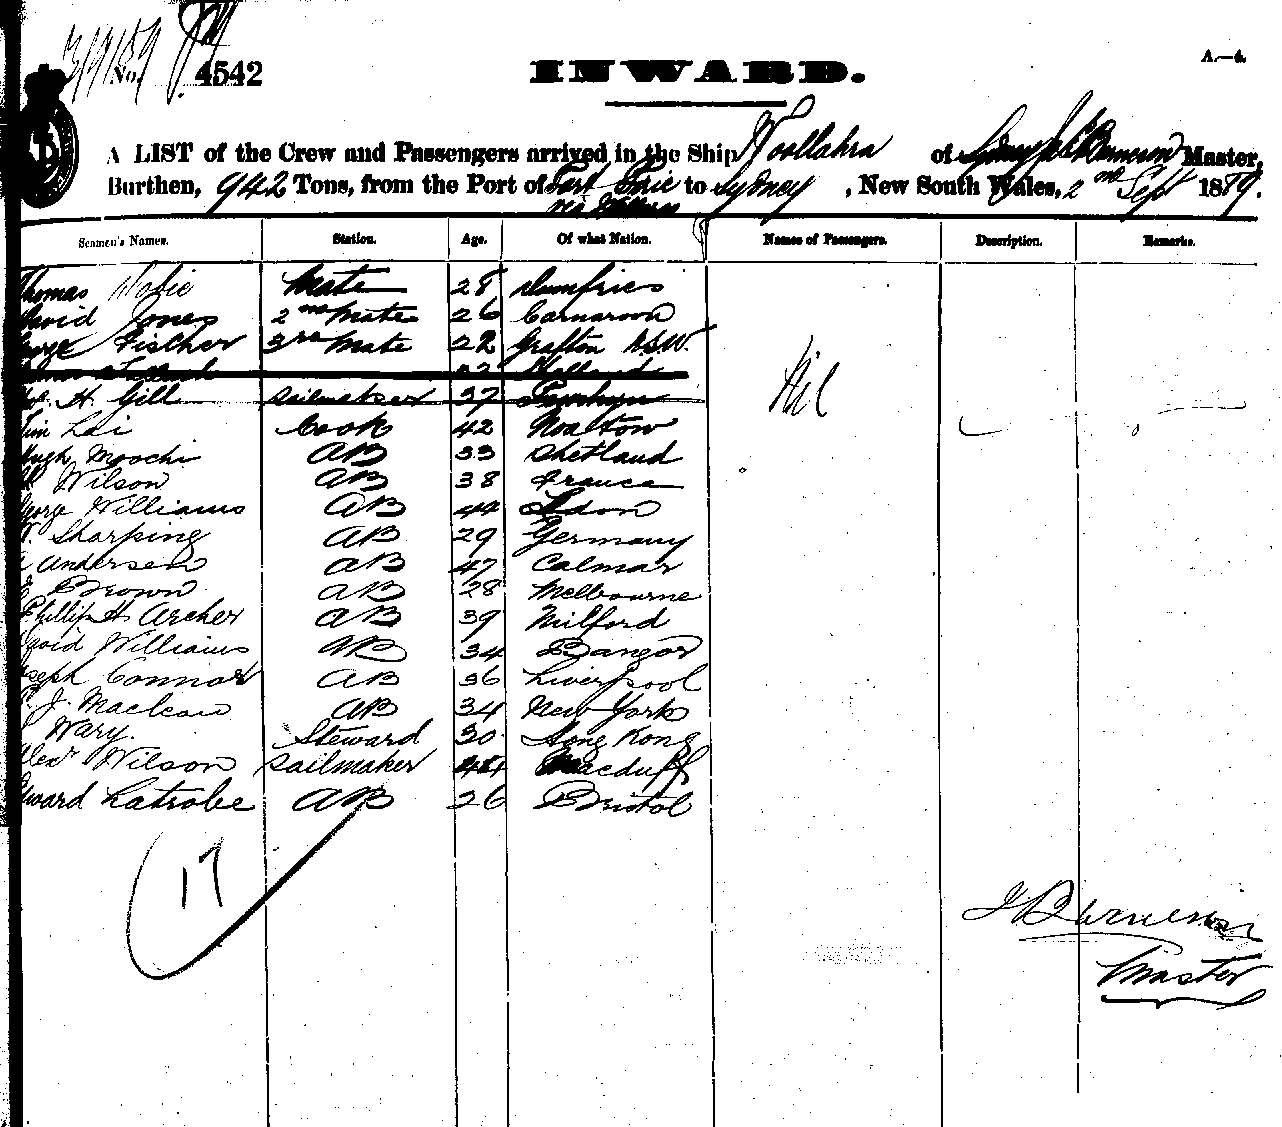 3/9/89
No. 4542
INWARD.
A.—4.
A LIST of the Crew and Passengers arrived in the Ship Woollahra of Sydney Master,
Burthen, 942 Tons, from the Port of to Sydney, New South Wales, 2nd Sept 1889.
via
Seamen's Names. Station. Age. Of what Nation. Names of Passengers. Description. Remarks.
Thomas Mate 28 Dumfries
David Jones 2nd Mate 26 Carnarvon
George Fischer 3rd Mate 22 Grafton N.S.W.
Nil
32 Holland
H. Gill Sailmaker 37
Lai Cook 42
Hugh Moochi AB 33 Shetland
Wilson AB 38 France
George Williams AB 44
Sharping AB 29 Germany
Andersen AB 47 Calmar
Brown AB 28 Melbourne
Phillip H Archer AB 39 Milford
David Williams AB 34 Bangor
Joseph Connor AB 36 Liverpool
J. Maclean AB 34 New York
Wary. Steward 30 Hong Kong
Alexr Wilson Sailmaker 44 Macduff
Edward Latrobe AB 26 Bristol
17
Master